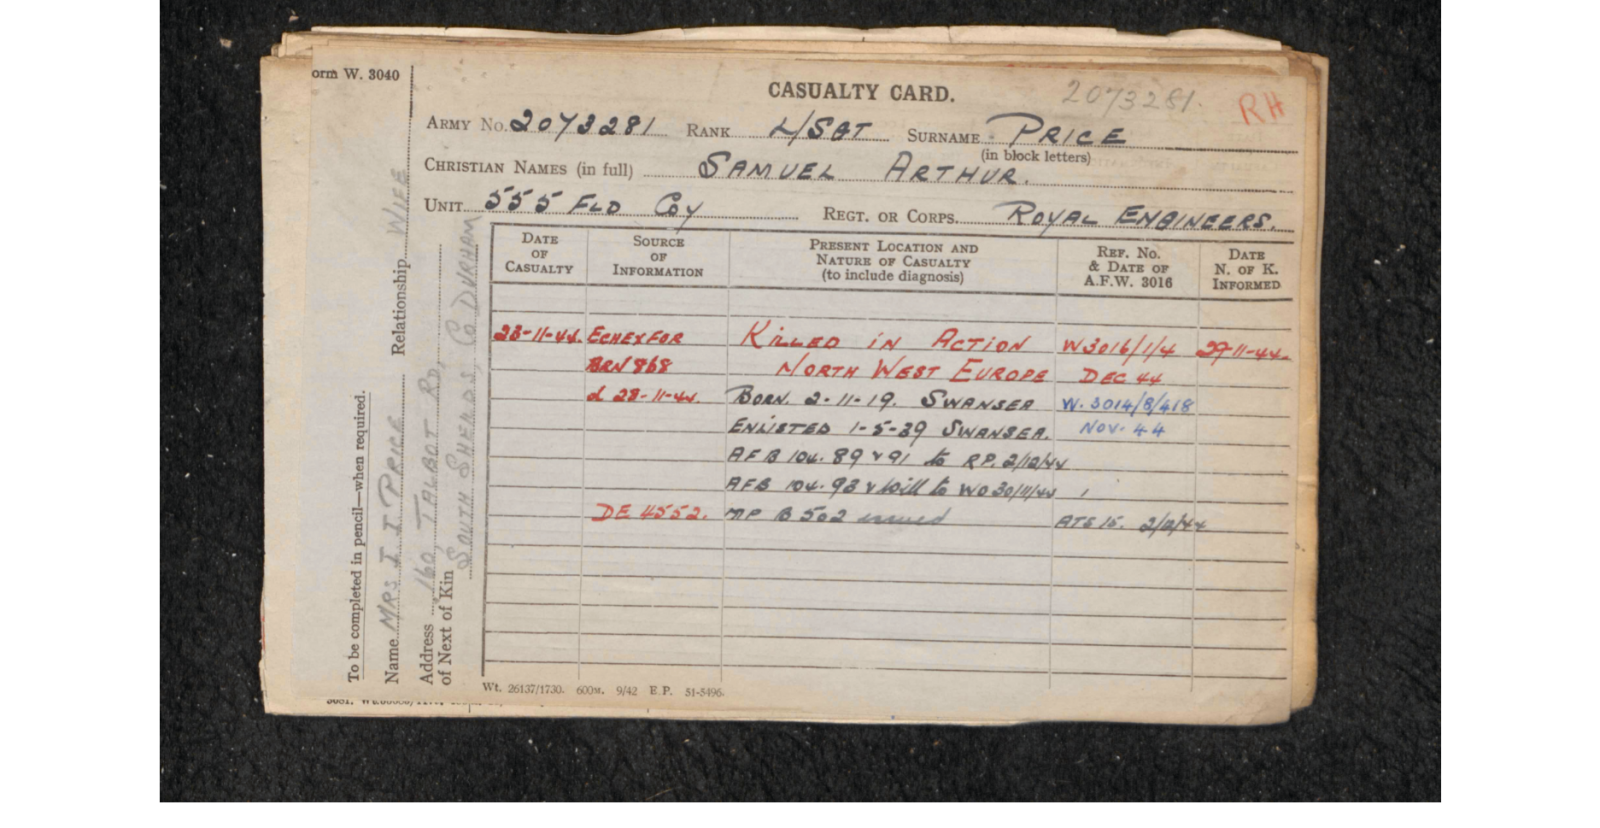 orm W. 3040
CASUALTY CARD.
2073281.
RH
ARMY No. 2073281 RANK L/SGT SURNAME PRICE
(in block letters)
CHRISTIAN NAMES (in full) SAMUEL ARTHUR.
UNIT 555 FLD COY REGT. OR CORPS. ROYAL ENGINEERS.
DATE OF CASUALTY
SOURCE OF INFORMATION
PRESENT LOCATION AND NATURE OF CASUALTY (to include diagnosis)
REF. NO. & DATE OF A.F.W. 3016
DATE N. OF K. INFORMED
23-11-44. ECHEXFOR KILLED IN ACTION W3016/1/4 29-11-44.
BRN 868 NORTH WEST EUROPE DEC 44
d 28-11-44. BORN. 2-11-19. SWANSEA W. 3014/8/418
ENLISTED 1-5-39 SWANSEA. NOV. 44
AFB 104. 89 & 91 to RP. 2/12/44
AFB 104. 93 & will to WO 30/11/44
DE 4552. MP B 502 issued ATS 15. 2/12/44
To be completed in pencil—when required.
Name MRS I I PRICE Relationship WIFE
Address of Next of Kin 160, TALBOT RD,
SOUTH SHIELDS, CO DURHAM
Wt. 26137/1730. 600M. 9/42 E.P. 51-5496.